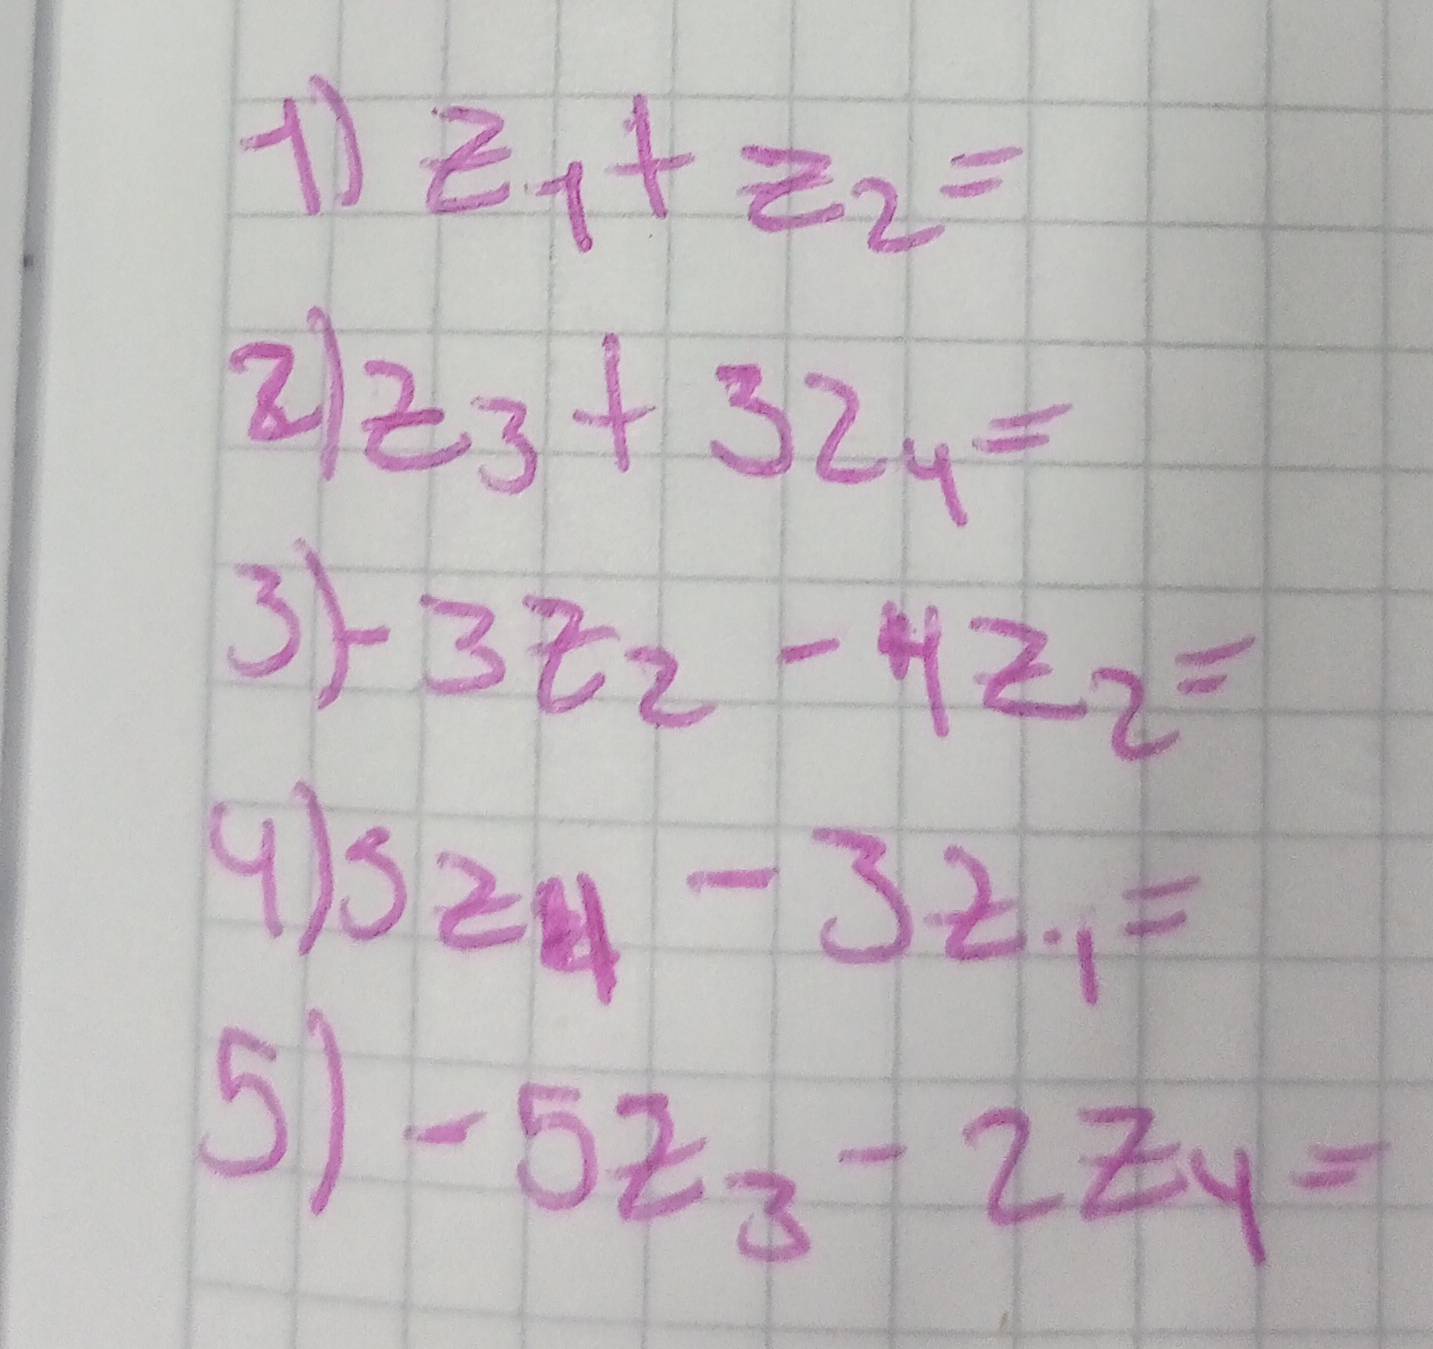 1) z₁ + z₂ =
2) z₃ + 3z₄ =
3) -3z₂ - 4z₂ =
4) 5z₄ - 3z₁ =
5) -5z₃ - 2z₄ =